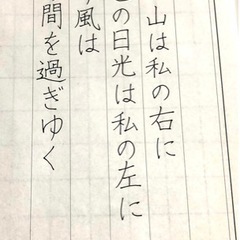 山は私の右に
の日光は私の左に
風は
間を過ぎゆく